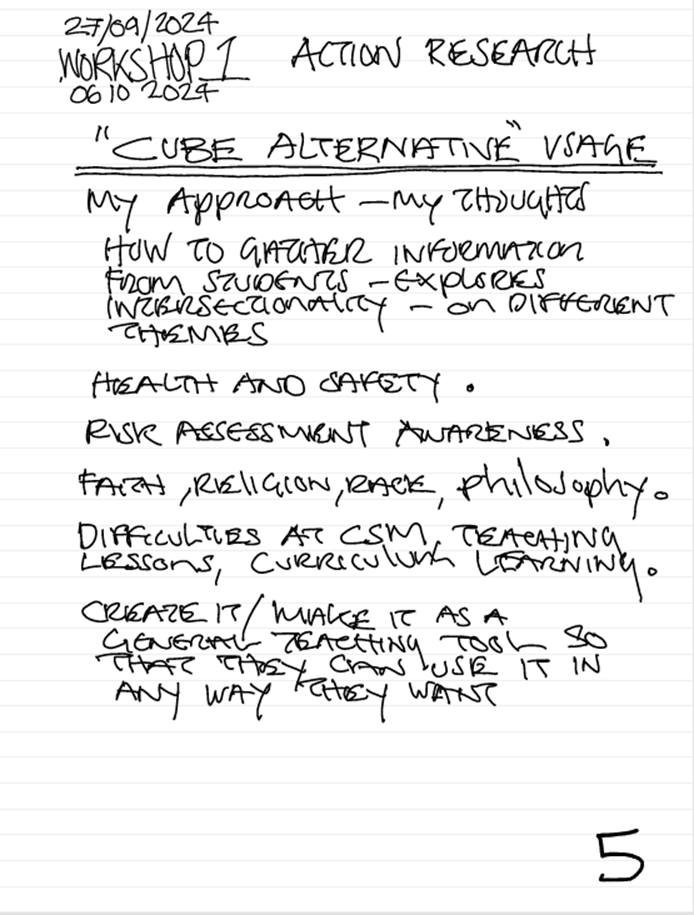 27/09/2024
WORKSHOP 1 ACTION RESEARCH
06 10 2024
"CUBE ALTERNATIVE" USAGE
MY APPROACH - MY THOUGHTS
HOW TO GATHER INFORMATION
FROM STUDENTS - EXPLORES
INTERSECTIONALITY - ON DIFFERENT
THEMES
HEALTH AND SAFETY.
RISK ASSESSMENT AWARENESS.
FAITH, RELIGION, RACE, philosophy.
DIFFICULTIES AT CSM, TEACHING
LESSONS, CURRICULUM LEARNING.
CREATE IT/MAKE IT AS A
GENERAL TEACHING TOOL SO
THAT THEY CAN USE IT IN
ANY WAY THEY WANT
5